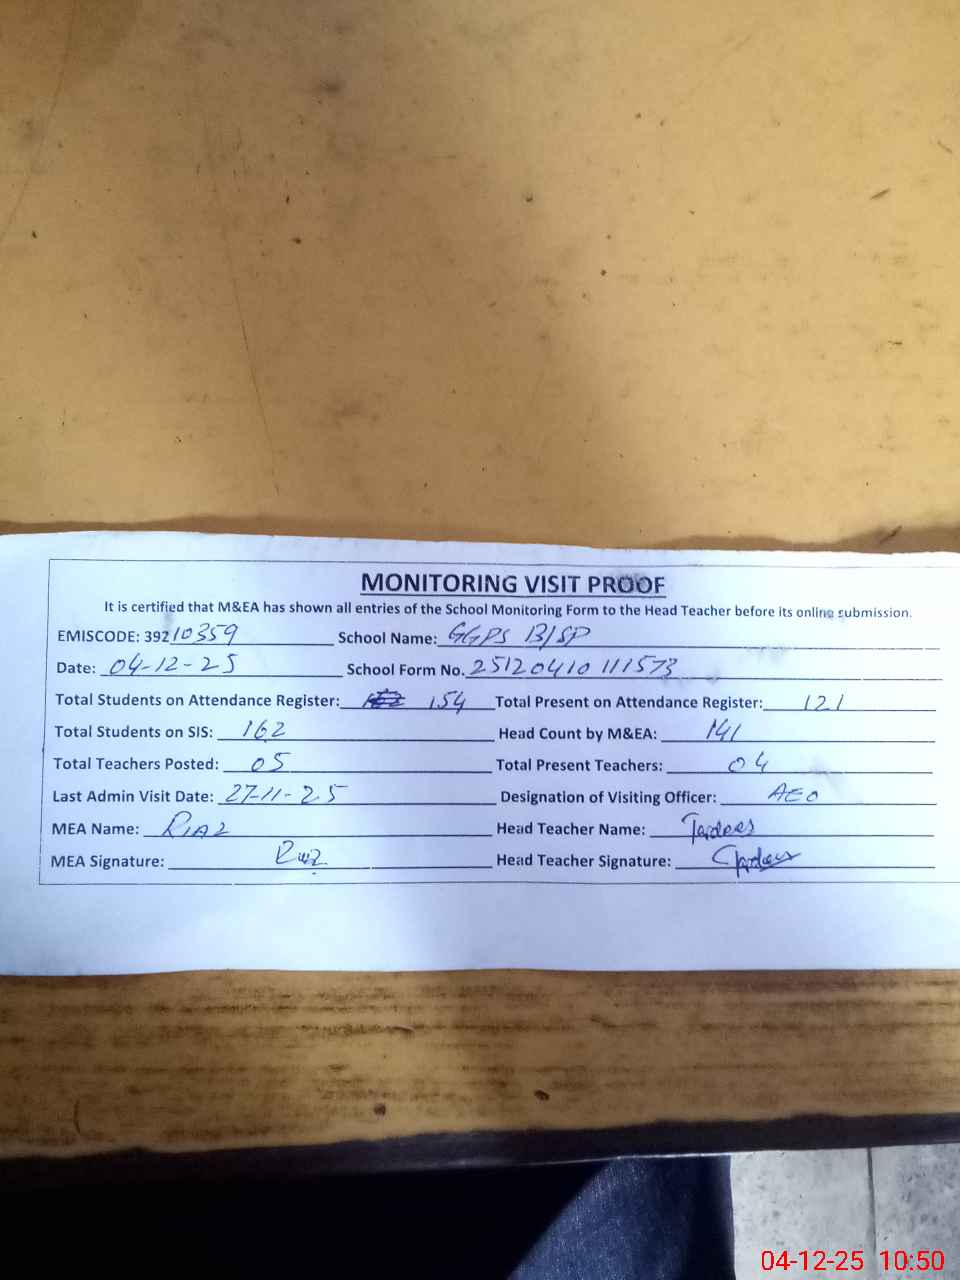 MONITORING VISIT PROOF
It is certified that M&EA has shown all entries of the School Monitoring Form to the Head Teacher before its online submission.
EMISCODE: 39210359 School Name: GGPS 13/SP
Date: 04-12-25 School Form No. 25120410111573
Total Students on Attendance Register: 154 Total Present on Attendance Register: 121
Total Students on SIS: 162 Head Count by M&EA: 141
Total Teachers Posted: 05 Total Present Teachers: 04
Last Admin Visit Date: 27-11-25 Designation of Visiting Officer: AEO
MEA Name: Riaz Head Teacher Name:
MEA Signature: Riaz Head Teacher Signature:
04-12-25 10:50